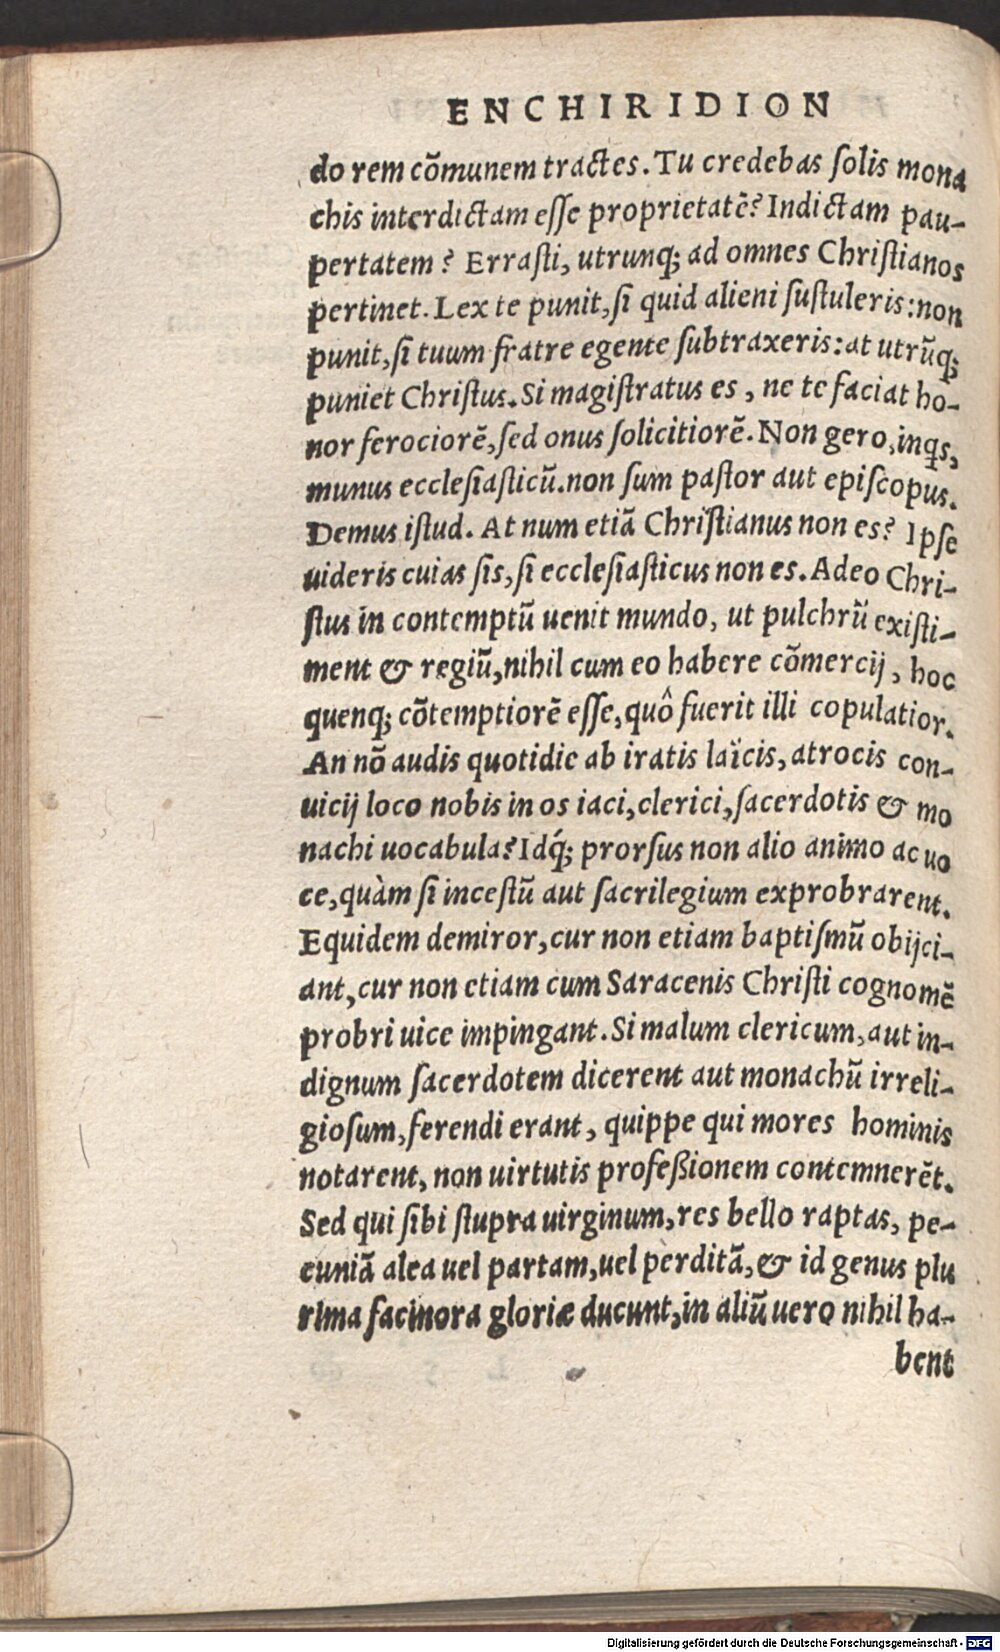 ENCHIRIDION
do rem cõmunem tractes. Tu credebas solis mona
chis interdictam esse proprietatẽ? Indictam pau-
pertatem? Errasti, utrunq; ad omnes Christianos
pertinet. Lex te punit, si quid alieni sustuleris: non
punit, si tuum fratre egente subtraxeris: at utrũq;
puniet Christus. Si magistratus es, ne te faciat ho-
nor ferociorẽ, sed onus solicitiorẽ. Non gero, inq̃s,
munus ecclesiasticũ. non sum pastor aut episcopus.
Demus istud. At num etiã Christianus non es? Ipse
uideris cuias sis, si ecclesiasticus non es. Adeo Chri-
stus in contemptũ uenit mundo, ut pulchrũ existi-
ment & regiũ, nihil cum eo habere cõmercij, hoc
quenq; cõtemptiorẽ esse, quô fuerit illi copulatior.
An nõ audis quotidie ab iratis laïcis, atrocis con-
uicij loco nobis in os iaci, clerici, sacerdotis & mo
nachi uocabula? Idq́; prorsus non alio animo ac uo
ce, quàm si incestũ aut sacrilegium exprobrarent.
Equidem demiror, cur non etiam baptismũ obijci-
ant, cur non etiam cum Saracenis Christi cognomẽ
probri uice impingant. Si malum clericum, aut in-
dignum sacerdotem dicerent aut monachũ irreli-
giosum, ferendi erant, quippe qui mores hominis
notarent, non uirtutis profeßionem contemnerẽt.
Sed qui sibi stupra uirginum, res bello raptas, pe-
cuniã alea uel partam, uel perditã, & id genus plu
rima facinora gloriæ ducunt, in aliũ uero nihil ha-
bent
Digitalisierung gefördert durch die Deutsche Forschungsgemeinschaft - DFG